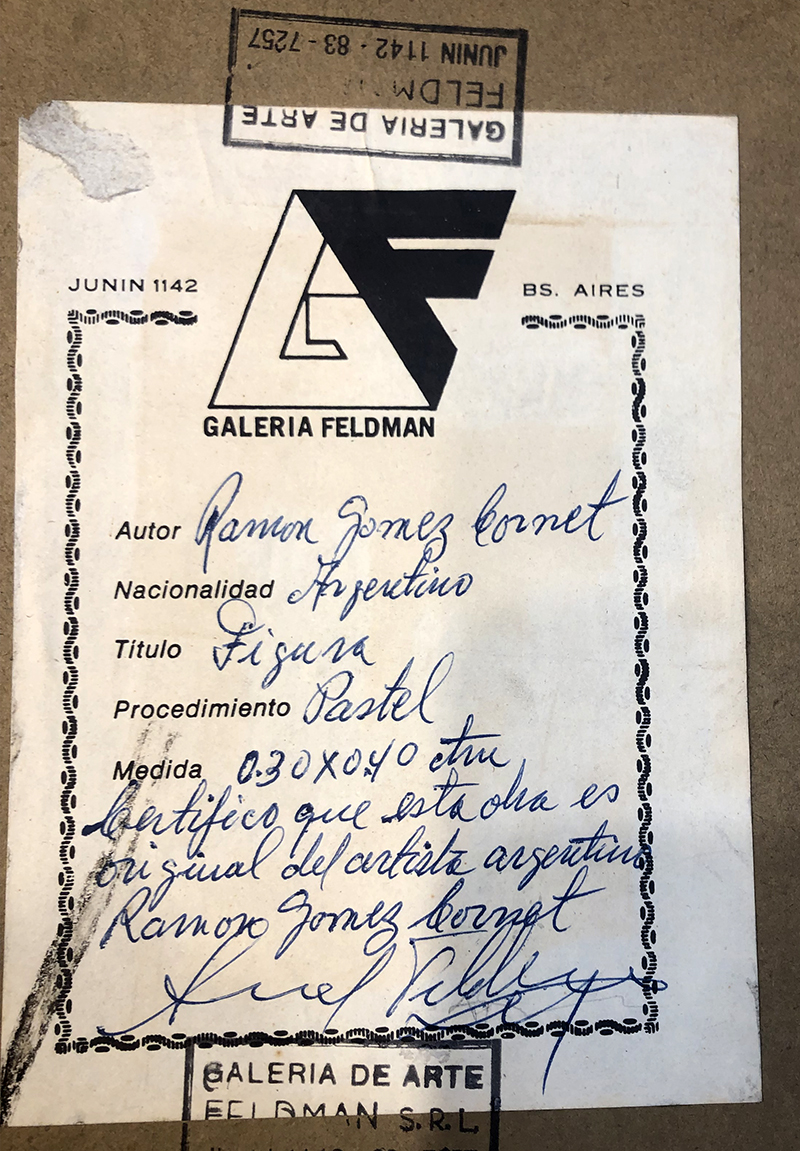 JUNIN 1142 - 83-7257
FELDM
GALERIA DE ARTE
GF
JUNIN 1142
BS. AIRES
GALERIA FELDMAN
Autor Ramon Gomez Cornet
Nacionalidad Argentino
Título Figura
Procedimiento Pastel
Medida 0.30X0.40 ctm
Certifico que esta obra es
original del artista argentino
Ramon Gomez Cornet
GALERIA DE ARTE
FELDMAN S.R.L.